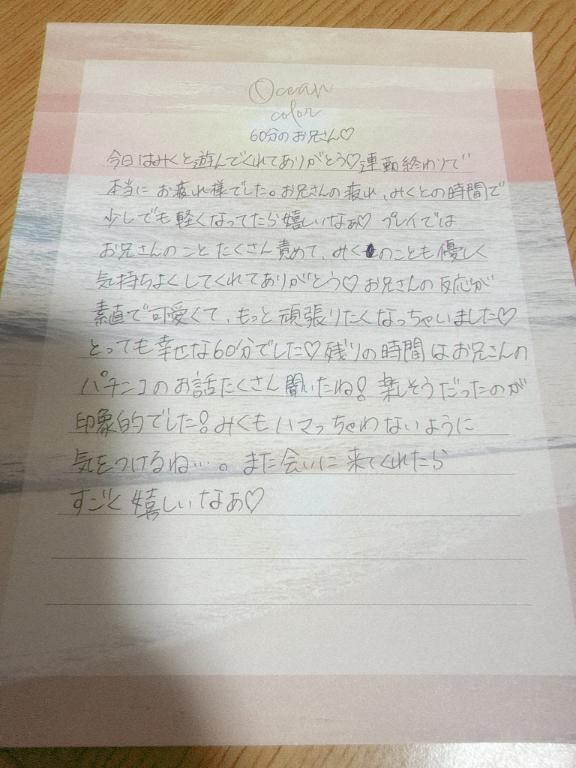 Ocean
color
60分のお兄さん♡
今日はみくと遊んでくれてありがとう♡連勤終わりで
本当にお疲れ様でした。お兄さんの疲れ、みくとの時間で
少しでも軽くなってたら嬉しいなぁ♡ プレイでは
お兄さんのことたくさん責めて、みくのことも優しく
気持ちよくしてくれてありがとう♡お兄さんの反応が
素直で可愛くて、もっと頑張りたくなっちゃいました♡
とっても幸せな60分でした♡残りの時間はお兄さんの
パチンコのお話たくさん聞いたね!楽しそうだったのが
印象的でした!みくもハマっちゃわないように
気をつけるね…。また会いに来てくれたら
すごく嬉しいなぁ♡